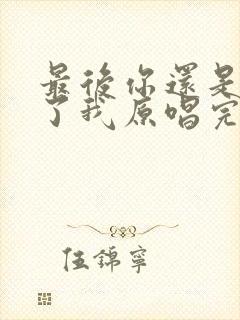 最後你還是
了我原唱完
伍錦寧